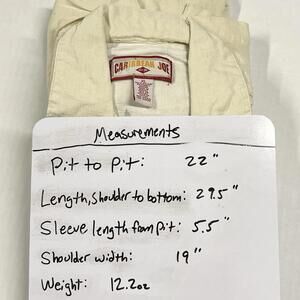 CARIBBEAN JOE
Measurements
Pit to Pit: 22"
Length, shoulder to bottom: 29.5"
Sleeve length from pit: 5.5"
Shoulder width: 19"
Weight: 12.2oz